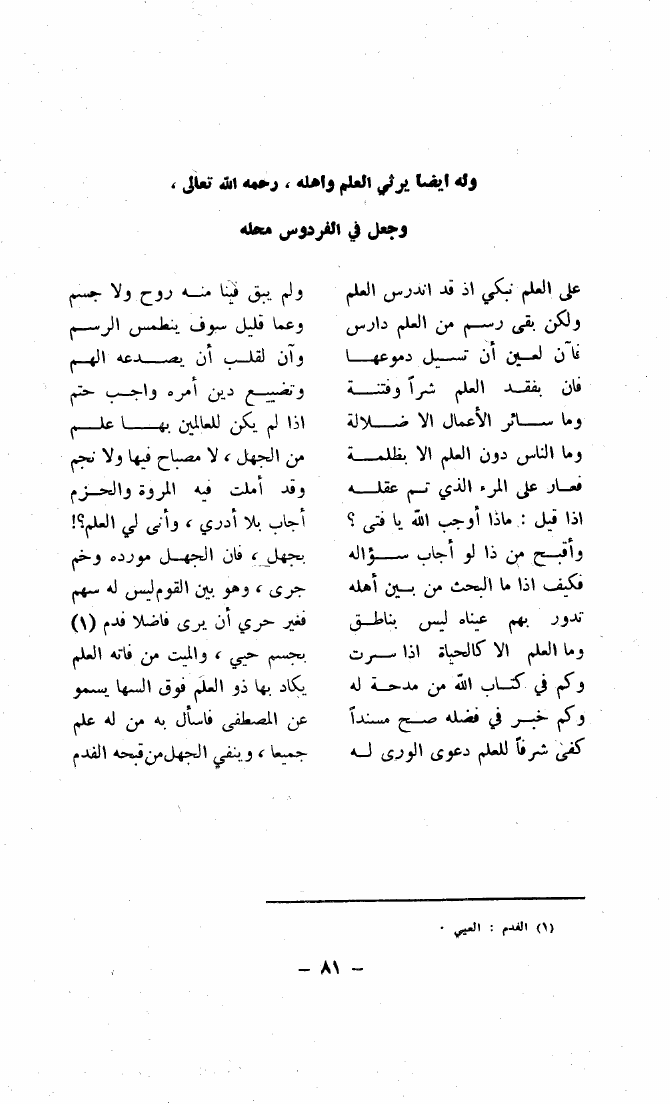 وله ايضا يرثي العلم واهله ، رحمه الله تعالى ،
وجعل في الفردوس محله
على العلم نبكي اذ قد اندرس العلم ولم يبق فينا منه روح ولا جسم
ولكن بقى رسم من العلم دارس وعما قليل سوف ينطمس الرسم
فآن لعين أن تسيل دموعها وآن لقلب أن يصدعه الهم
فان بفقد العلم شراً وفتنة وتضييع دين أمره واجب حتم
وما سائر الأعمال الا ضلالة اذا لم يكن للعالمين بها علم
وما الناس دون العلم الا بظلمة من الجهل ، لا مصباح فيها ولا نجم
فعار على المرء الذي تم عقله وقد أملت فيه المروة والحزم
اذا قيل : ماذا أوجب الله يا فتى ؟ أجاب بلا أدري ، وأنى لي العلم؟!
وأقبح من ذا لو أجاب سؤاله بجهل ، فان الجهل مورده وخم
فكيف اذا ما البحث من بين أهله جرى ، وهو بين القوم ليس له سهم
تدور بهم عيناه ليس بناطق فغير حري أن يرى فاضلا فدم (١)
وما العلم الا كالحياة اذا سرت بجسم حيي ، والميت من فاته العلم
وكم في كتاب الله من مدحة له يكاد بها ذو العلم فوق السها يسمو
وكم خبر في فضله صح مسنداً عن المصطفى فاسأل به من له علم
كفى شرفاً للعلم دعوى الورى له جميعا ، وينفي الجهل من قبحه الفدم
(١) الفدم : العيي .
– ٨١ –